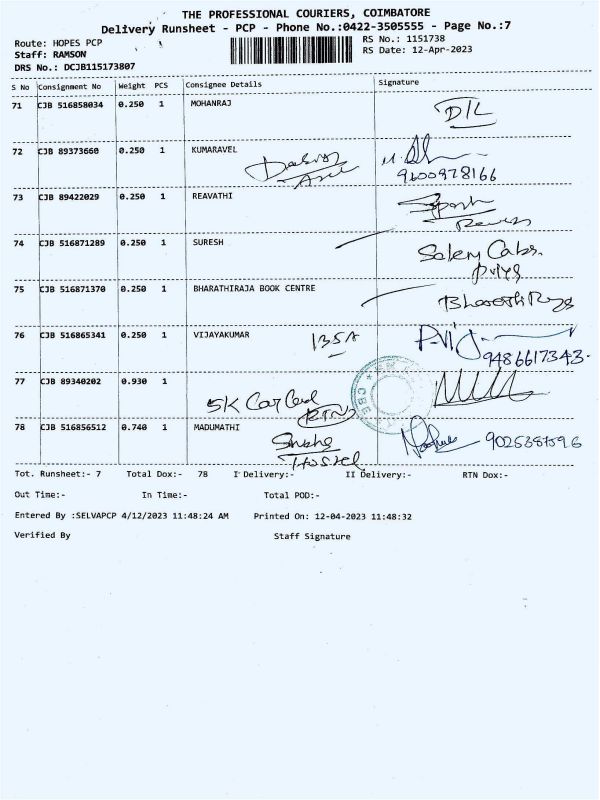 THE PROFESSIONAL COURIERS, COIMBATORE
Delivery Runsheet - PCP - Phone No.:0422-3505555 - Page No.:7
Route: HOPES PCP
RS No.: 1151738
Staff: RAMSON
RS Date: 12-Apr-2023
DRS No.: DCJB115173807
S No Consignment No Weight PCS Consignee Details Signature
71 CJB 516858034 0.250 1 MOHANRAJ D/L
72 CJB 89373660 0.250 1 KUMARAVEL
9600978166
73 CJB 89422029 0.250 1 REAVATHI
74 CJB 516871289 0.250 1 SURESH
Salem Cabs.
Priya
75 CJB 516871370 0.250 1 BHARATHIRAJA BOOK CENTRE
76 CJB 516865341 0.250 1 VIJAYAKUMAR 135A
9486617343.
77 CJB 89340202 0.930 1
SK Car
RTNS
78 CJB 516856512 0.740 1 MADUMATHI
9025387596
Hostel
Tot. Runsheet:- 7 Total Dox:- 78 I Delivery:- II Delivery:- RTN Dox:-
Out Time:- In Time:- Total POD:-
Entered By :SELVAPCP 4/12/2023 11:48:24 AM Printed On: 12-04-2023 11:48:32
Verified By Staff Signature